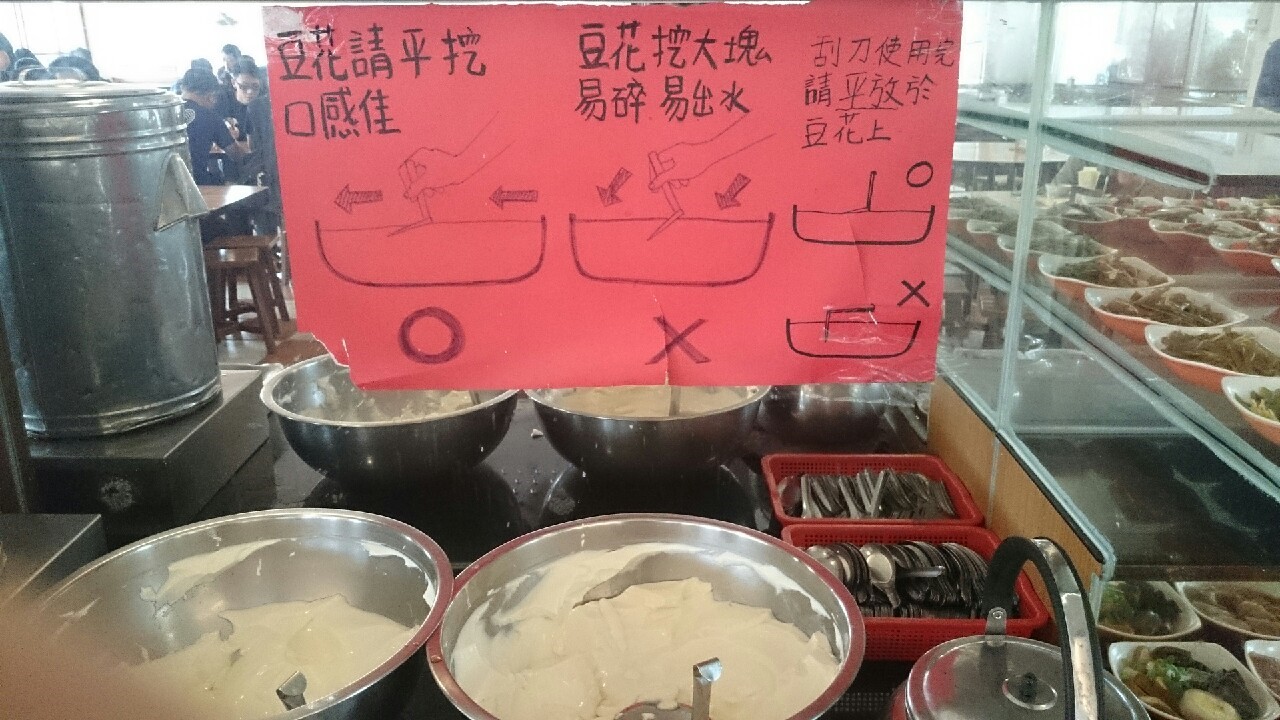 豆花請平挖
口感佳
豆花挖大塊
易碎易出水
刮刀使用完
請平放於
豆花上